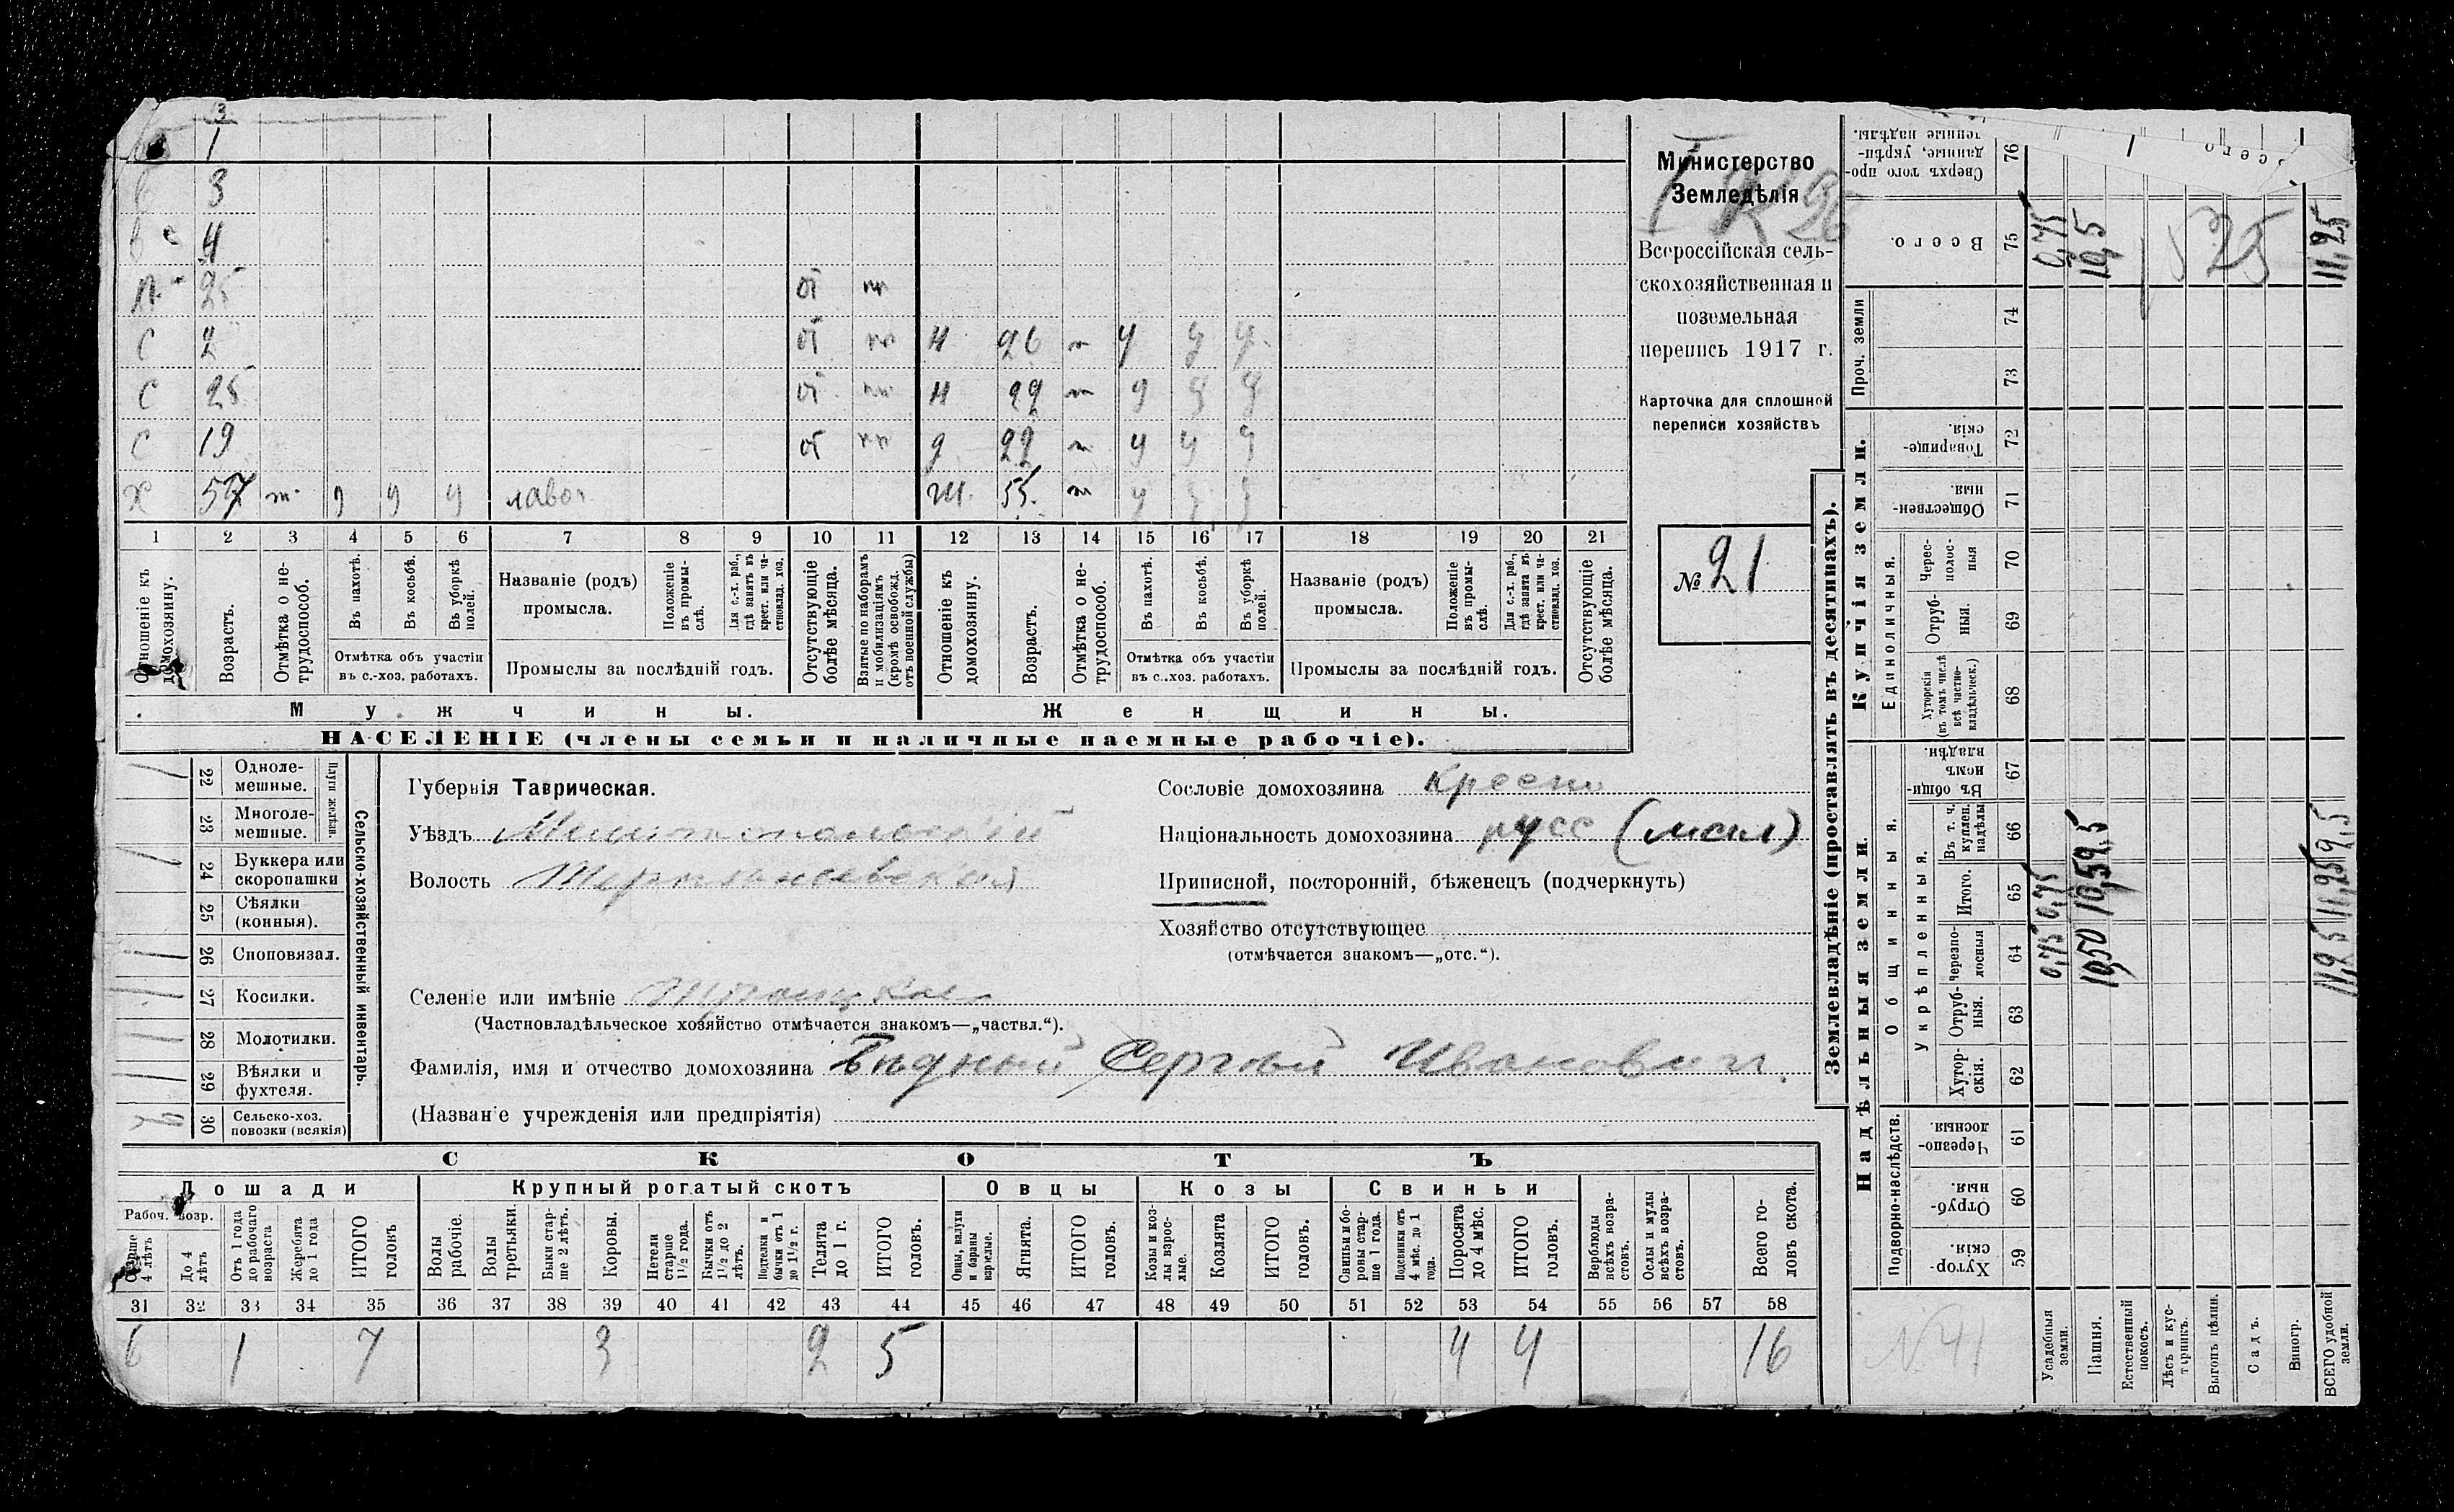 3
1
3
4
25 от
С 2 от Н 26 у у у
С 25 от Н 22 у у у
С 19 от 22 у у у
Х 57 у у у лавоч Ж. 55. у у у
1 2 3 4 5 6 7 8 9 10 11 12 13 14 15 16 17 18 19 20 21
Отношеніе къ домохозяину.
Возрастъ.
Отмѣтка о не-трудоспособ.
Въ пахотѣ.
Въ косьбѣ.
Въ уборкѣ полей.
Отмѣтка объ участіи
въ с.-хоз. работахъ.
Названіе (родъ)
промысла.
Положеніе въ промы-слѣ.
Для с.-х. раб., гдѣ занятъ въ крест. или ча-стновлад. хоз.
Промыслы за послѣдній годъ.
Отсутствующіе болѣе мѣсяца.
Взятые по наборамъ и мобилизаціямъ (кромѣ освобожд. отъ военной службы)
Отношеніе къ домохозяину.
Возрастъ.
Отмѣтка о не-трудоспособ.
Въ пахотѣ.
Въ косьбѣ.
Въ уборкѣ полей.
Отмѣтка объ участіи
въ с.-хоз. работахъ.
Названіе (родъ)
промысла.
Положеніе въ промы-слѣ.
Для с.-х. раб., гдѣ занята въ крест. или ча-стновлад. хоз.
Промыслы за послѣдній годъ.
Отсутствующіе болѣе мѣсяца.
Мужчины. Женщины.
НАСЕЛЕНІЕ (члены семьи и наличные наемные рабочіе).
Министерство
Земледѣлія
Всероссійская сель-
скохозяйственная и
поземельная
перепись 1917 г.
Карточка для сплошной
переписи хозяйствъ
№ 21
22 Одноле-мешные.
23 Многоле-мешные.
Плуги желѣзн.
24 Буккера или скоропашки
25 Сѣялки (конныя).
26 Сноповязал.
27 Косилки.
28 Молотилки.
29 Вѣялки и фухтеля.
30 Сельско-хоз. повозки (всякія)
Сельско-хозяйственный инвентарь.
Губернія Таврическая.
Уѣздъ Мелитопольскій
Волость
Селеніе или имѣніе Троицкое
(Частновладѣльческое хозяйство отмѣчается знакомъ—„частвл.“).
Фамилія, имя и отчество домохозяина Бѣдный Сергѣй Ивановичъ
(Названіе учрежденія или предпріятія)
Сословіе домохозяина Крестьян
Національность домохозяина русс (мал)
Приписной, посторонній, бѣженецъ (подчеркнуть)
Хозяйство отсутствующее
(отмѣчается знакомъ—„отс.“).
СКОТЪ
Лошади Крупный рогатый скотъ Овцы Козы Свиньи
Рабоч. возр.
Старше 4 лѣтъ
До 4 лѣтъ
Отъ 1 года до рабочаго возраста
Жеребята до 1 года
ИТОГО головъ
Волы рабочіе.
Волы третьяки.
Быки стар-ше 2 лѣтъ.
Коровы.
Нетели старше 1 1/2 года.
Бычки отъ 1 1/2 до 2 лѣтъ.
Подтелки и бычки отъ 1 до 1 1/2 г.
Телята до 1 г.
ИТОГО головъ.
Овцы, валухи и бараны взрослые.
Ягнята.
ИТОГО головъ.
Козы и коз-лы взрос-лые.
Козлята
ИТОГО головъ.
Свиньи и бо-ровы стар-ше 1 года.
Подсвинки отъ 4 мѣс. до 1 года.
Поросята до 4 мѣс.
ИТОГО головъ.
Верблюды всѣхъ возра-стовъ.
Ослы и мулы всѣхъ возра-стовъ.
Всего го-ловъ скота.
31 32 33 34 35 36 37 38 39 40 41 42 43 44 45 46 47 48 49 50 51 52 53 54 55 56 57 58
6 1 7 3 2 5 4 4 16
Землевладѣніе (проставлять въ десятинахъ).
Надѣльныя земли. Купчія земли. Проч. земли
Подворно-наслѣдств.
Общинныя.
Укрѣпленныя.
Единоличныя.
Хутор-скія. 59
Отруб-ныя. 60
Черезпо-лосныя. 61
Хутор-скія. 62
Отруб-ныя. 63
Черезпо-лосныя 64
Итого. 65
Въ т. ч. куплен. надѣлы 66
Въ общи-номъ владѣн. 67
Хуторскія (въ томъ числѣ всѣ частно-владѣльческ.) 68
Отруб-ныя. 69
Черес-полос-ныя 70
Обществен-ныя. 71
Товарище-скія. 72
73
74
Всего. 75
Сверхъ того про-данные, укрѣп-ленные надѣлы. 76
Всего
Усадебныя земли. 0,75 0,75 0,75
Пашня. 10,50 10,5 10,5
Естественный покосъ.
Лѣсъ и кус-тарникъ.
Выгонъ цѣлин.
Садъ.
Виногр.
ВСЕГО удобной земли. 11,25 11,25 11,25
N 41